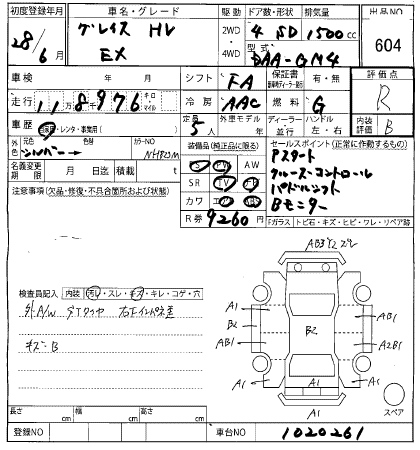 初度登録年月 車名・グレード 駆動 ドア数・形状 排気量 出品NO
28/6月 グレイス HV 2WD・4WD 4 SD 1500cc 604
EX 型式 DAA-GM4
車検 年 月 シフト FA 保証書 有・無 評価点
走行 11万8千976 キロ・マイル 冷房 AAC 燃料 G R
車歴 自家用・レンタ・事業用( ) 定員 5人 外車モデル年 ディーラー・並行 ハンドル 左・右 内装評価 B
元色 シルバー 色替 カラーNO NH823M 装備品(純正品に限る) セールスポイント(正常に作動するもの)
名義変更期限 月 日迄 積載 t S PW AW Pスタート
注意事項(欠品・修復・不具合箇所および状態) SR TV ナビ クルーズコントロール
カワ エア パドルシフト
R券 9260円 Bモニター
Fガラス トビ石・キズ・ヒビ・ワレ・リペア跡
検査員記入 内装 汚れ・スレ・キズ・キレ・コゲ・穴
外A/W
キズ・B
A1
B2
AB1
A1
B2
AB1
A2B1
A1
A1
A1
スペア
長さ cm 幅 cm 高さ cm
登録NO 車台NO 1020261